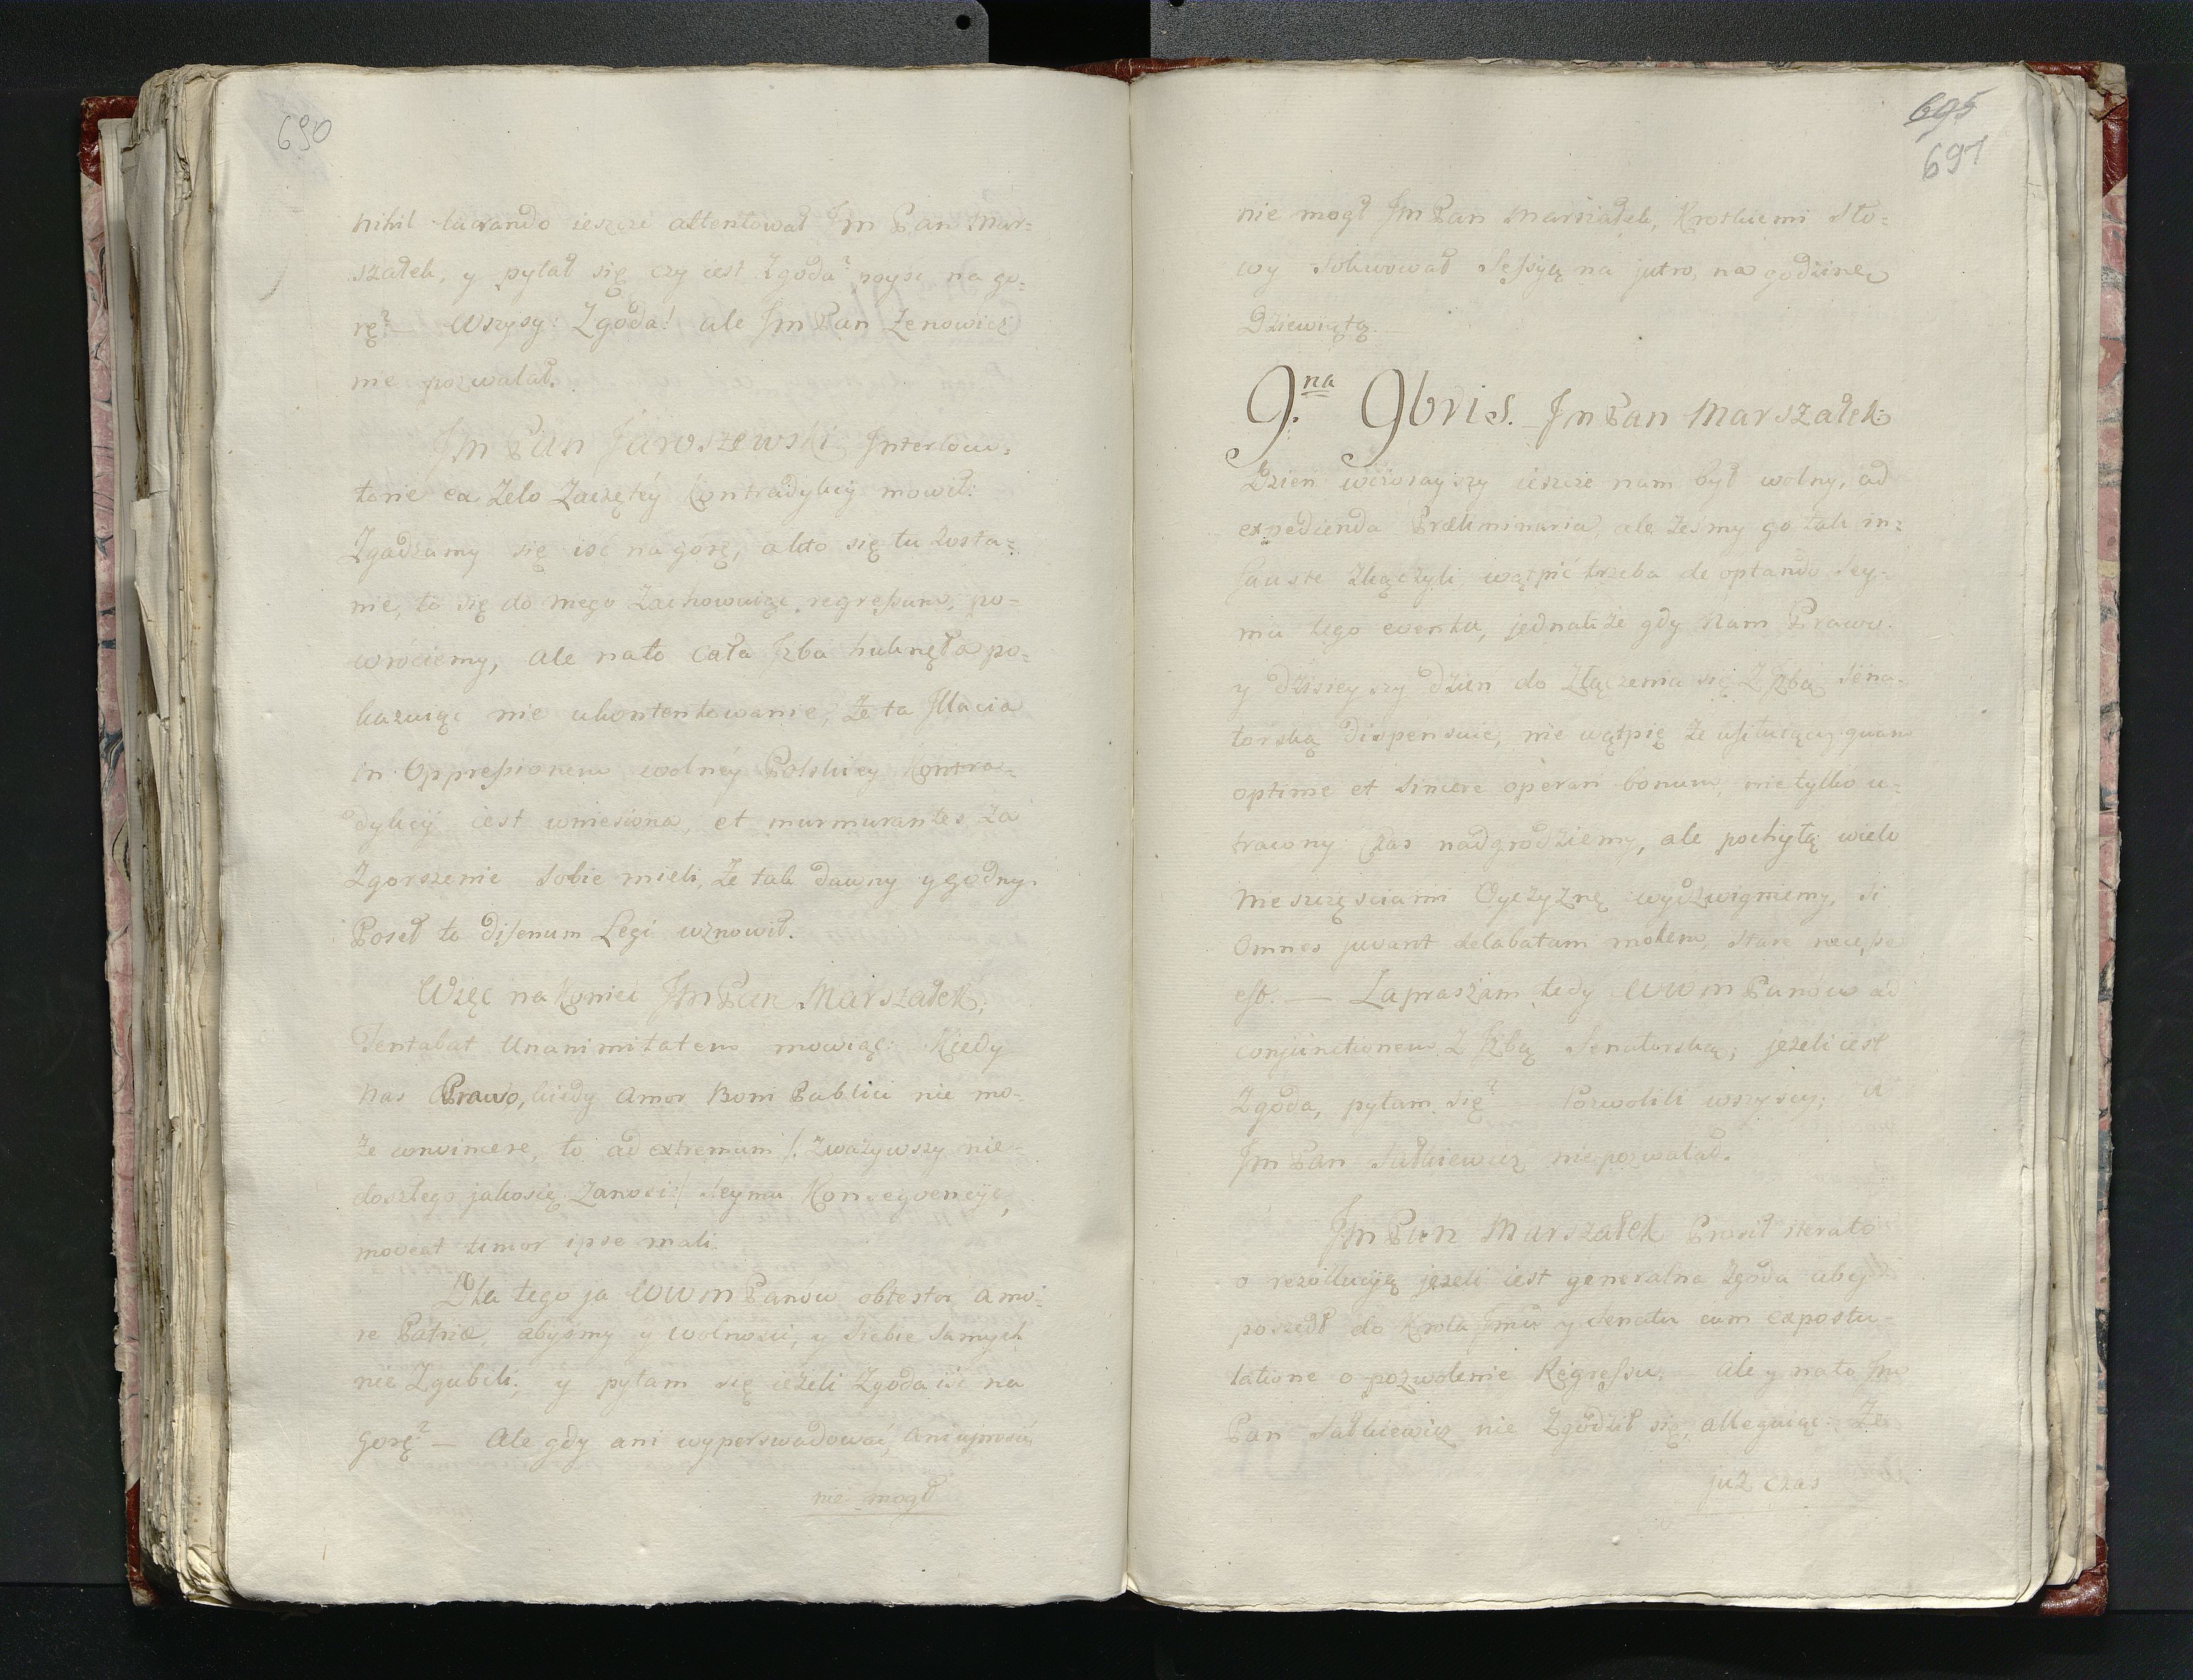 690
nihil lucrando ieszcze attentował Jm Pan Mar=
szałek, y pytał się czy iest Zgoda? poyść na go=
rę? — Wszyscy: Zgoda! ale Jm Pan Zenowicz
nie pozwalał.
Jm Pan Jaroszewski Interlocu=
torie ea Zelo Zaczętéy Kontradykcij mowił:
Zgadzamy się iść na górę, a kto się tu zosta=
nie, to się do niego Zachowuiąc regressum, po=
wróciemy, ale na to cała Jzba huknęła po=
kazuiąc nie ukontentowanie, Że ta Jllacia
in Oppressionem wolnéy Polskiey Kontra=
dykcij iest wniesiona, et murmurantes Za
Zgorszenie Sobie mieli, Że tak dawny y godny
Poseł to disenum Legi wznowił.
Więc na koniec Jm Pan Marszałek,
Tentabat Unanimitatem mowiąc: Kiedy
nas Prawo, kiedy Amor Boni Publici nie mo=
że convincere, to ad extremum /: zważywszy nie=
doszłego jako się Zanosi :/ Seymu Konseqvencije,
moveat timor ipse mali.
Dla tego ja WWm Panów obtestor amo=
re Patriæ, abyśmy y wolności, y Siebie Samych
nie Zgubili; y pytam się ieżeli Zgoda iść na
gorę? — Ale gdy ani wyperswadować, ani uprosić
nie mogł
695
691
nie mogł Jm Pan Marszałek, Krotkiemi Sło=
wy Solwował Sessyą na jutro, na godzinę
Dziewiątą.
9.na 9bris. Jm Pan Marszałek:
Dzień wczorayszy ieszcze nam był wolny, ad
expedienda Præliminaria ale żeśmy go tak in=
fauste zkączyli, wątpić trzeba de optando Sey=
mu tego eventu, jednakże gdy Nam Prawo
y dzisieyszy dzień do Złączenia się Z Jzbą Sena=
torską dispensuie, nie wątpię że usiłuiący quam
optime et sincere operari bonum, nie tylko u=
tracony czas nadgrodziemy, ale pochyłą wielo
nieszczęściami Oyczyznę wydzwigniemy, Si
Omnes juvant delabatam molem, Stare necesse
est. — Zapraszam tedy WWm Panów ad
conjunctionem Z Jzbą Senatorską; jeżeli iest
Zgoda, pytam się? Pozwolili wszyscy; a
Jm Pan Sutkiewicz nie pozwalał.
Jm Pan Marszałek Prosił iterato
o rezollucyją jeżeli iest generalna Zgoda abyś
poszedł do Krola Jmci y Senatu cum expostu=
latione o pozwolenie Regressu. Ale y na to Jm
Pan Sutkiewicz nie Zgodził się, alleguiąc: Że
już czas